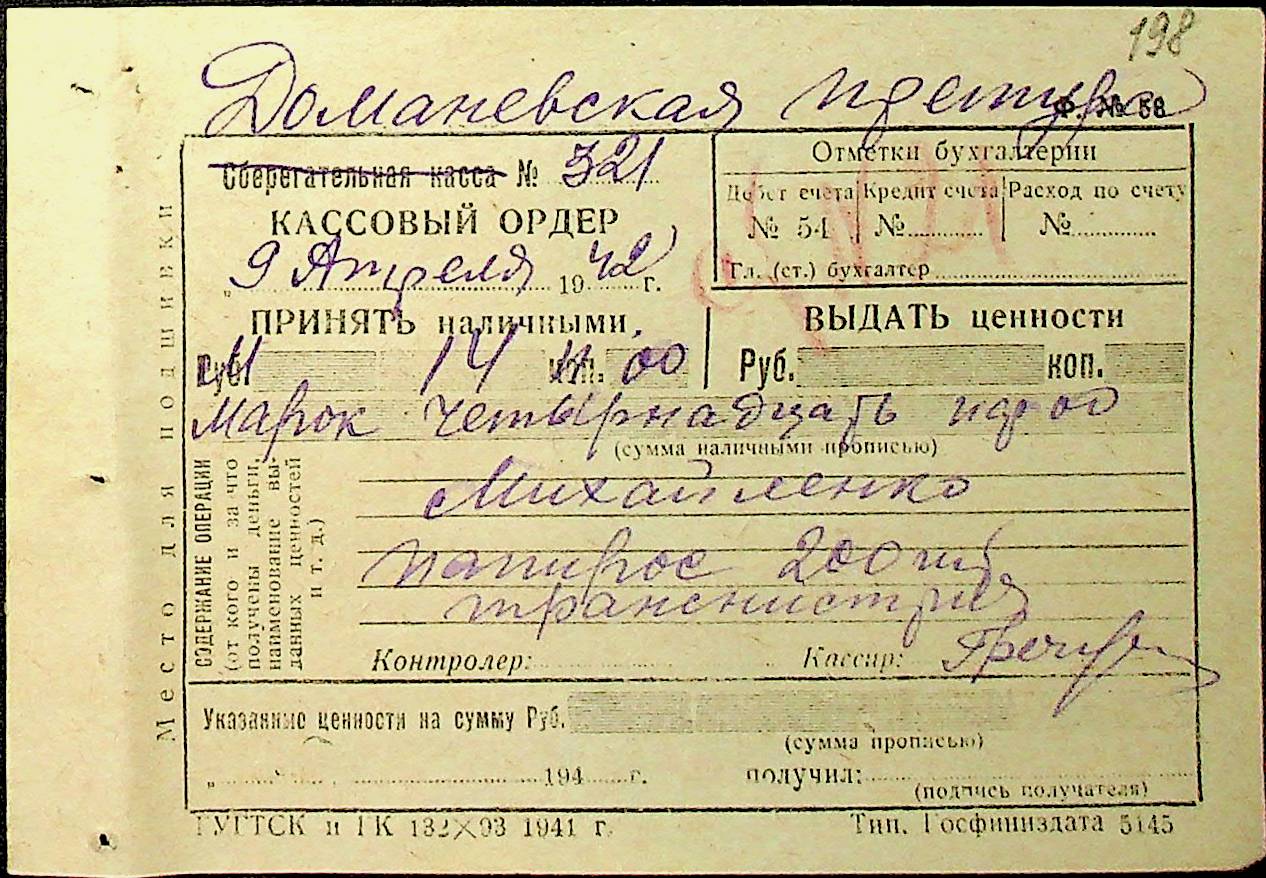 198
Доманевская претура
Ф. № 58
Сберегательная касса № 321
КАССОВЫЙ ОРДЕР
9 Апреля 1942 г.
Отметки бухгалтерии
Дебет счета Кредит счета Расход по счету
№ 54 № №
Гл. (ст.) бухгалтер
ПРИНЯТЬ наличными
Руб. 14 коп. 00
ВЫДАТЬ ценности
Руб. коп.
Марок четырнадцать
(сумма наличными прописью)
Место для подшивки
СОДЕРЖАНИЕ ОПЕРАЦИИ
(от кого и за что
получены деньги,
наименование вы-
данных ценностей
и т. д.)
Михайленко
папирос 200 шт
транснистрия
Контролер: Кассир:
Указанные ценности на сумму Руб.
(сумма прописью)
„ 194 г. получил:
(подпись получателя)
ГУГТСК и ГК 132X93 1941 г.
Тип. Госфиниздата 5145